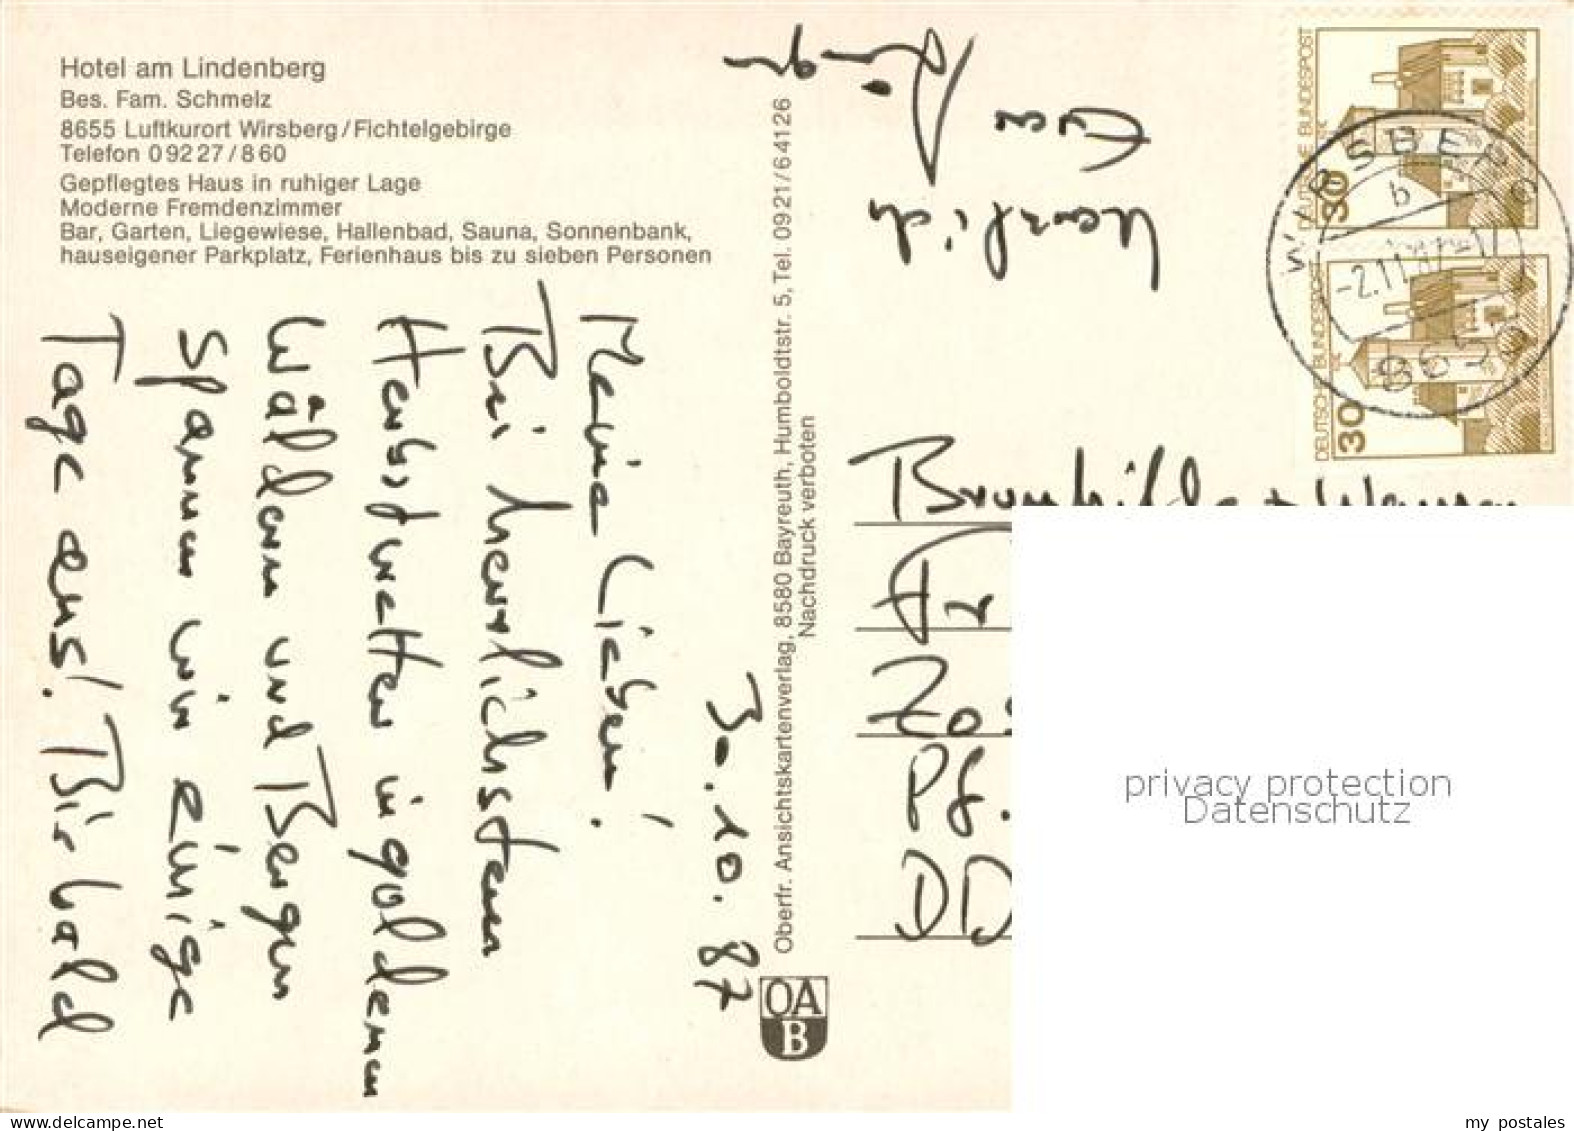 Hotel am Lindenberg
Bes. Fam. Schmelz
8655 Luftkurort Wirsberg/Fichtelgebirge
Telefon 09227/860
Gepflegtes Haus in ruhiger Lage
Moderne Fremdenzimmer
Bar, Garten, Liegewiese, Hallenbad, Sauna, Sonnenbank,
hauseigener Parkplatz, Ferienhaus bis zu sieben Personen
30.10.87
Meine Lieben!
Bei herrlichstem
Herbstwetter in goldenen
Wäldern und Bergen
spannen wir einige
Tage aus! Bis bald
Herzlich
Eure
Oberfr. Ansichtskartenverlag, 8580 Bayreuth, Humboldtstr. 5, Tel. 0921/64126
Nachdruck verboten
OA
B
DEUTSCHE BUNDESPOST
30
DEUTSCHE BUNDESPOST
30
WIRSBERG
b
-2.11.87-17
8655
Brunhilde + Werner
Zo
Pf.
DD
privacy protection
Datenschutz
my postales